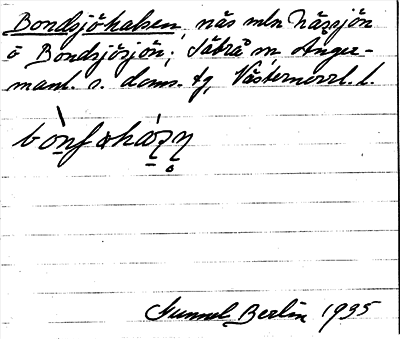 Bondsjöhalsen, näs mln Näsjön
o Bondsjösjön; Säbrå sn, Ånger-
manl. s. doms. tg, Västernorrl. l.
Gunnel Berlin 1935